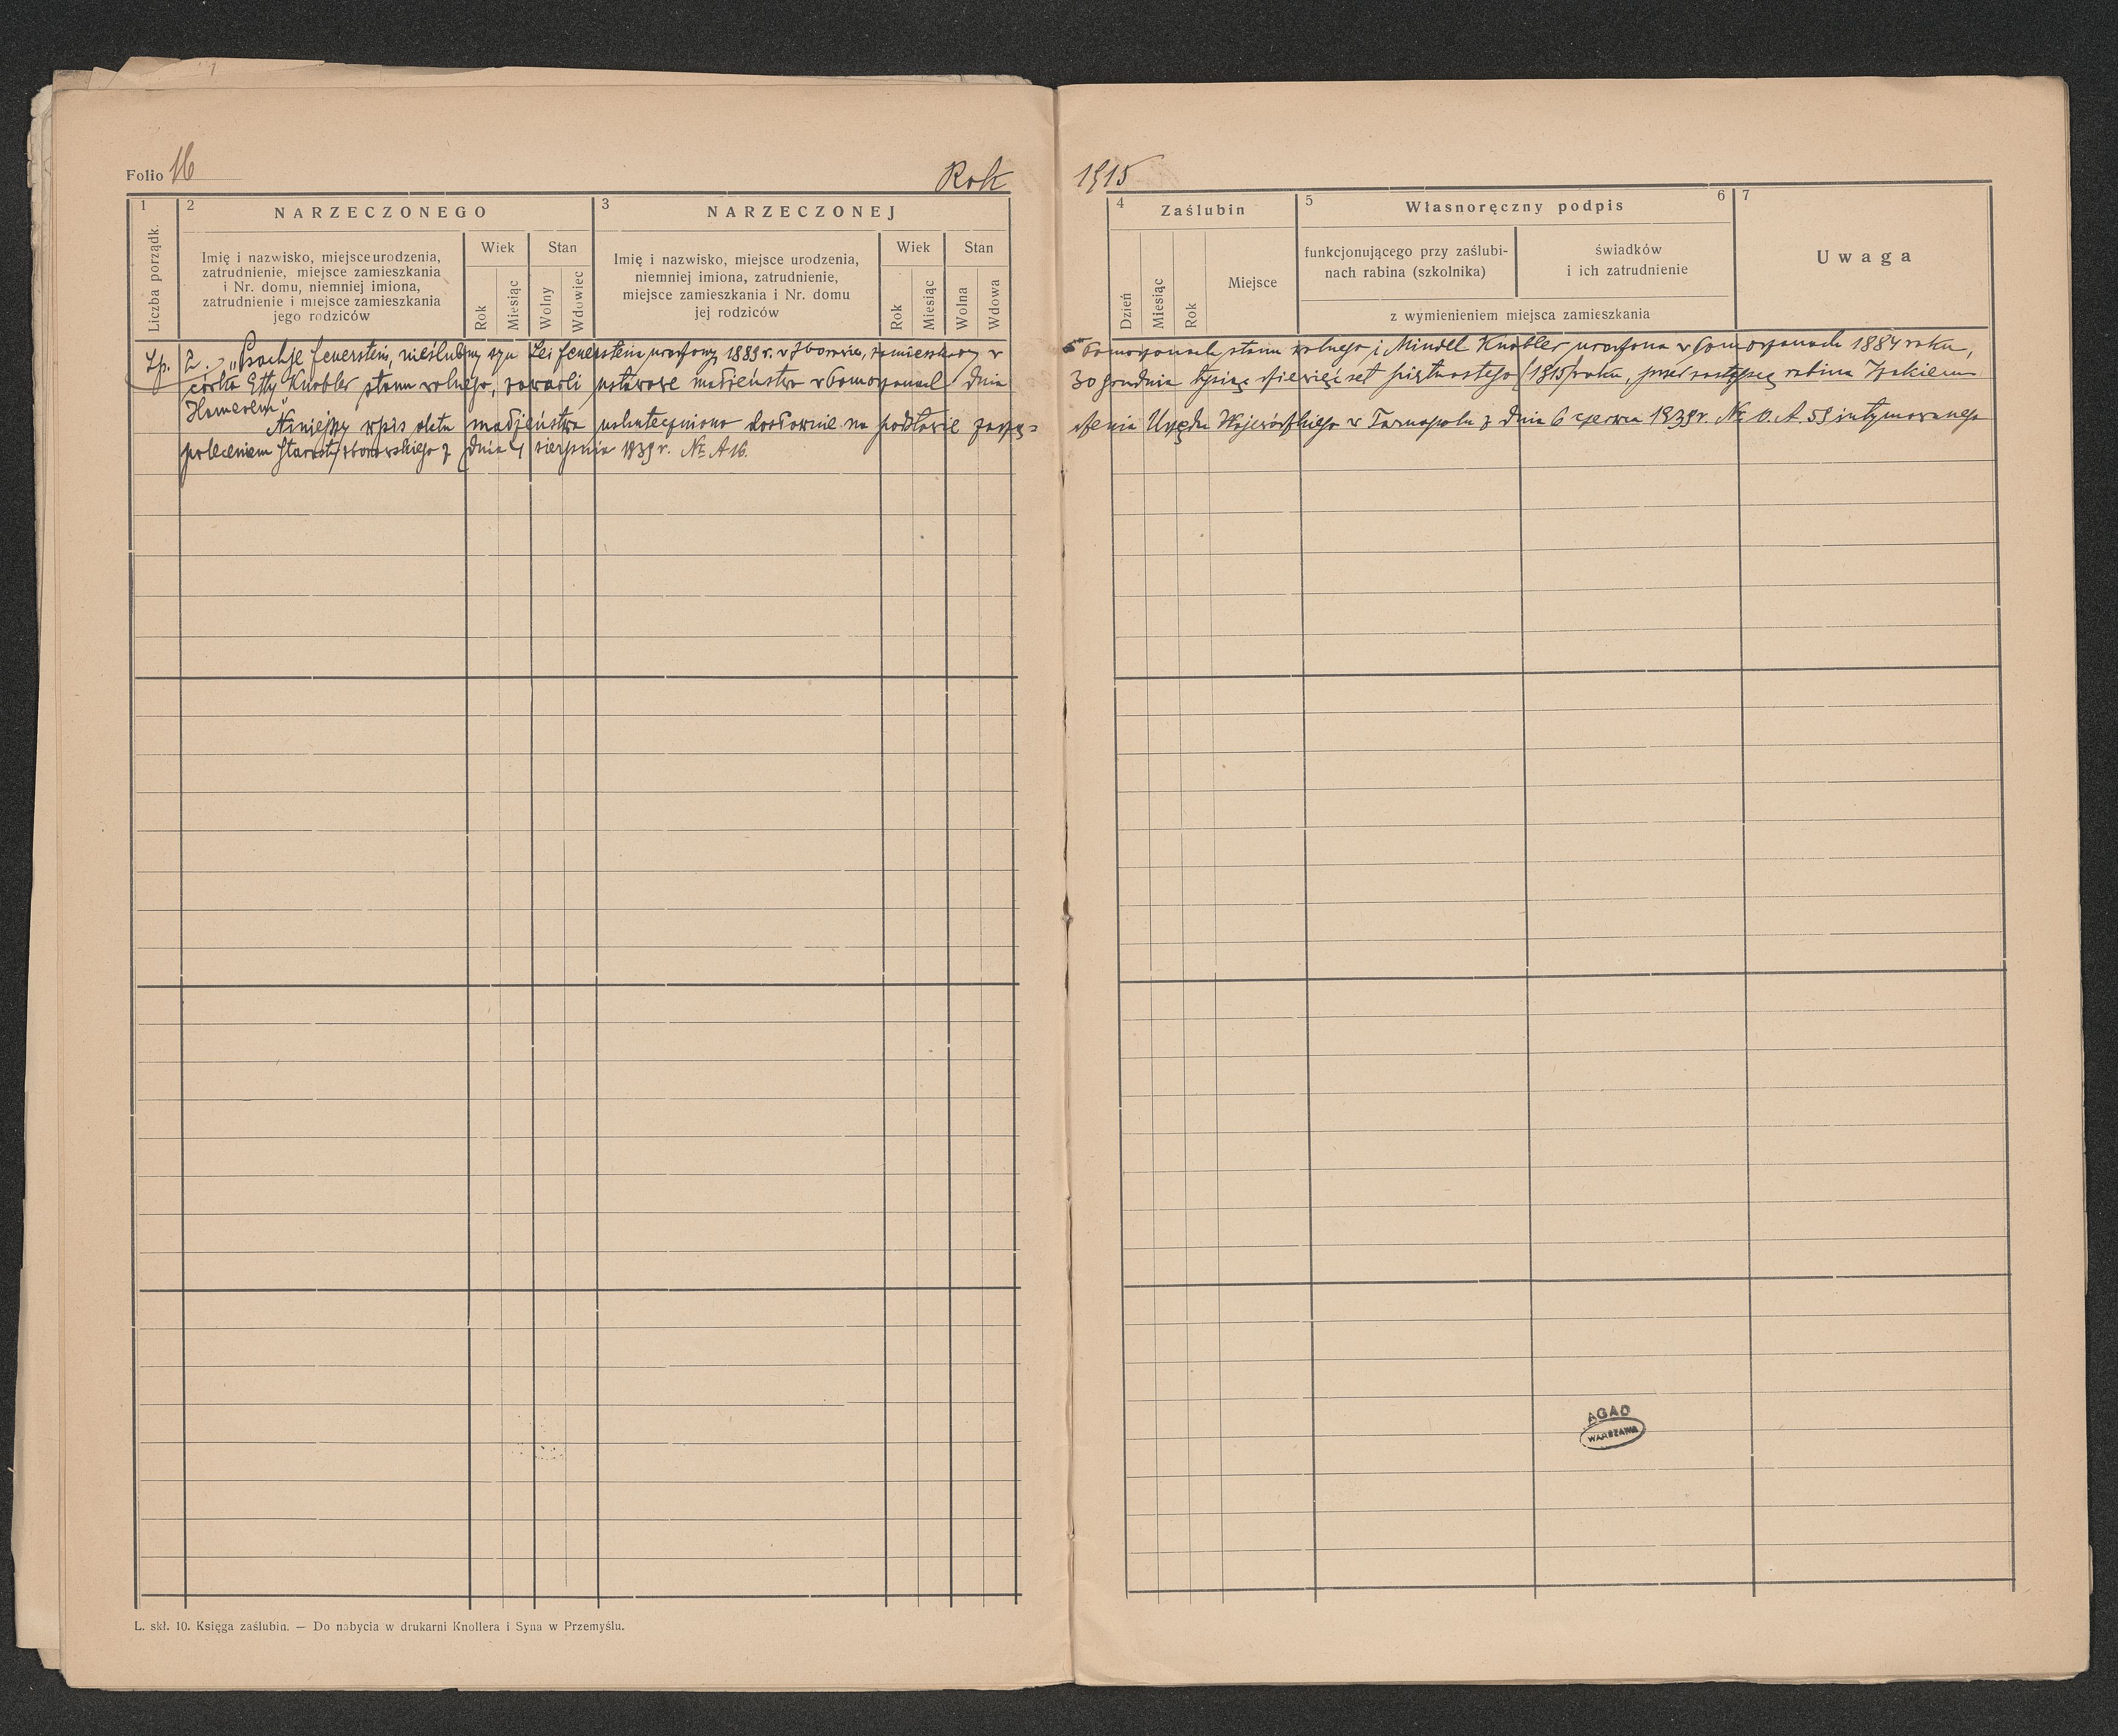 Folio 16
Rok 1915
1
2 NARZECZONEGO
3 NARZECZONEJ
4 Zaślubin
5 Własnoręczny podpis 6
7
Liczba porządk.
Imię i nazwisko, miejsce urodzenia,
zatrudnienie, miejsce zamieszkania
i Nr. domu, niemniej imiona,
zatrudnienie i miejsce zamieszkania
jego rodziców
Wiek
Rok
Miesiąc
Stan
Wolny
Wdowiec
Imię i nazwisko, miejsce urodzenia,
niemniej imiona, zatrudnienie,
miejsce zamieszkania i Nr. domu
jej rodziców
Wiek
Rok
Miesiąc
Stan
Wolna
Wdowa
Dzień
Miesiąc
Rok
Miejsce
funkcjonującego przy zaślubi-
nach rabina (szkolnika)
świadków
i ich zatrudnienie
z wymienieniem miejsca zamieszkania
Uwaga
Lp. 2. „ Feuerstein, nieślubny syn Lei Feuerstein urodzony 1889 r. w Zborowie, zamieszkały w Pomorzanach stanu wolnego i Mindel Knobler urodzona w Pomorzanach 1884 roku,
córka Etty Knobler stanu wolnego, zawarli ustawowe małżeństwo w Pomorzanach dnia 30 grudnia tysiąc dziewięćset piętnastego /1915/ roku, przed zastępcą rabina
Hamerem"
Niniejszy wpis aktu małżeństwa uskuteczniono dosłownie na podstawie zarzą= dzenia Urzędu Wojewódzkiego w Tarnopolu z dnia 6 czerwca 1939 r. № O.A. 59 intymowanego
poleceniem Starosty zborowskiego z dnia 4 sierpnia 1939 r. № A 16.
AGAD
WARSZAWA
L. skł. 10. Księga zaślubin. — Do nabycia w drukarni Knollera i Syna w Przemyślu.